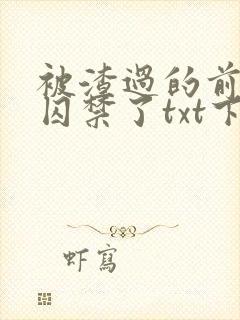 被渣过的前
囚禁了txt下
虾写